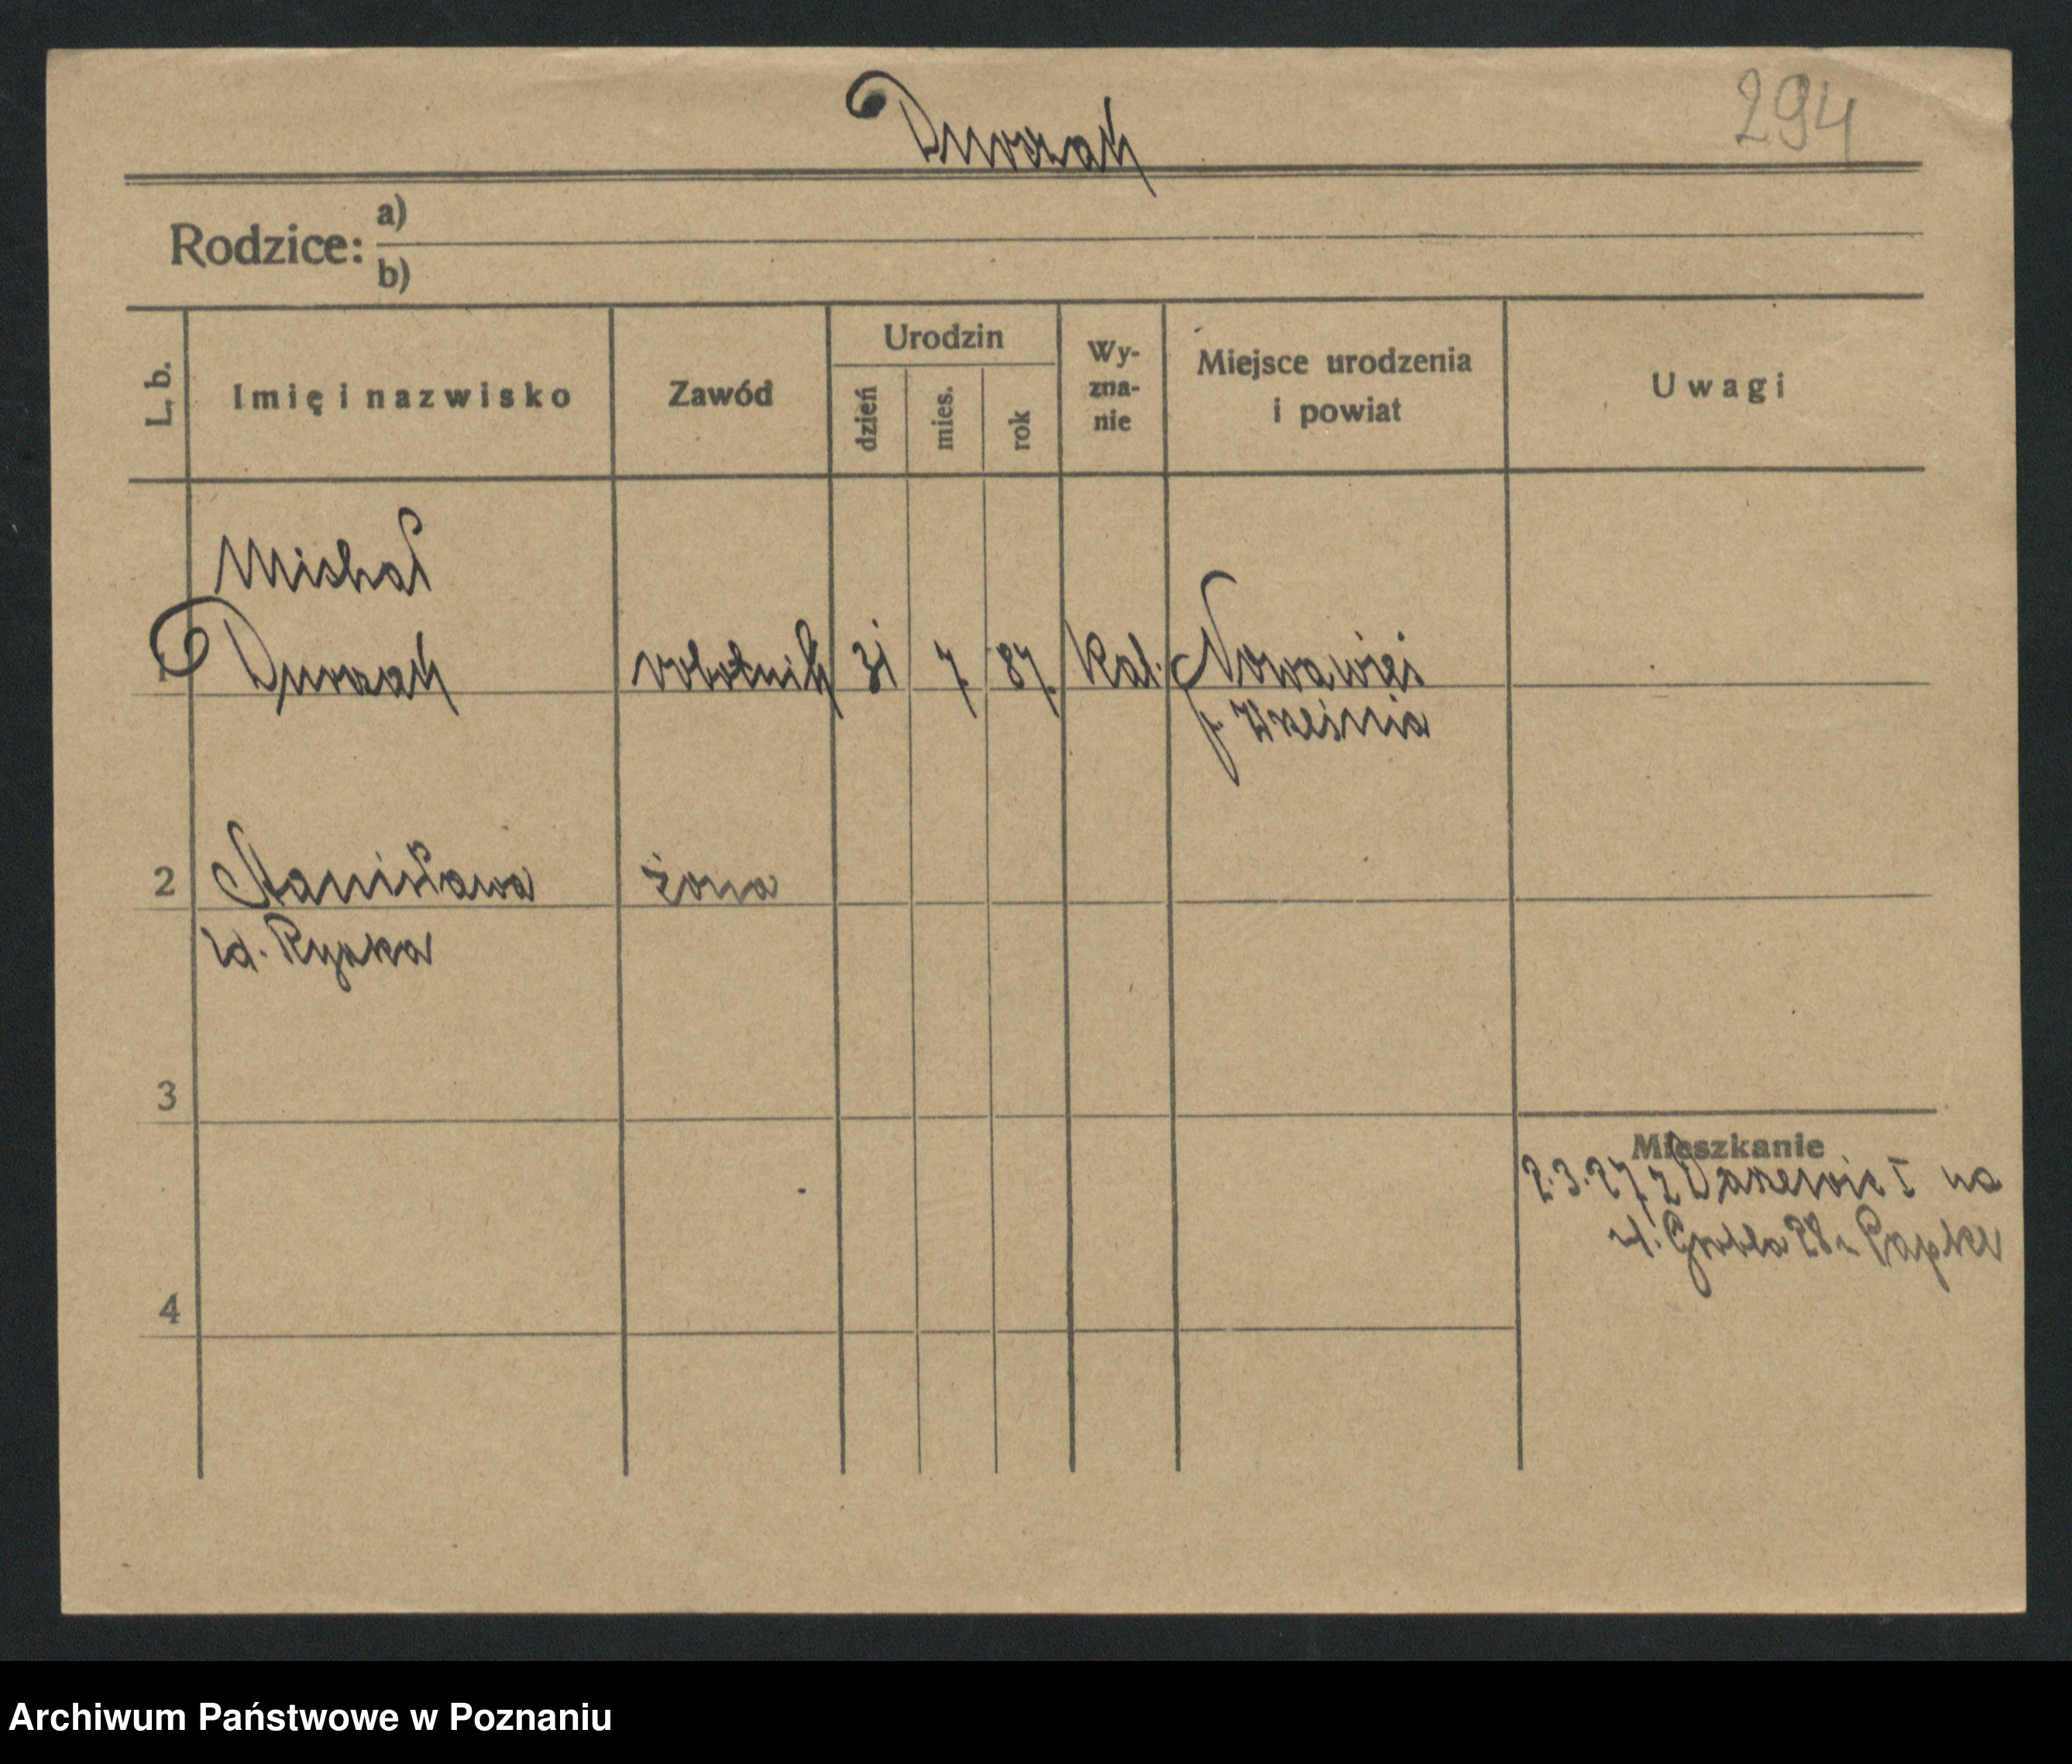 294
Dworzak
Rodzice: a)
b)
L. b.
Imię i nazwisko
Zawód
Urodzin
dzień
mies.
rok
Wy-
zna-
nie
Miejsce urodzenia
i powiat
Uwagi
Michał
Dworzak robotnik 31 7. 87. Kat. Nowawieś
p. Września
2 Stanisława żona
3
4
Mieszkanie
2.3.27 z I na
ul. Grobla 28
Archiwum Państwowe w Poznaniu